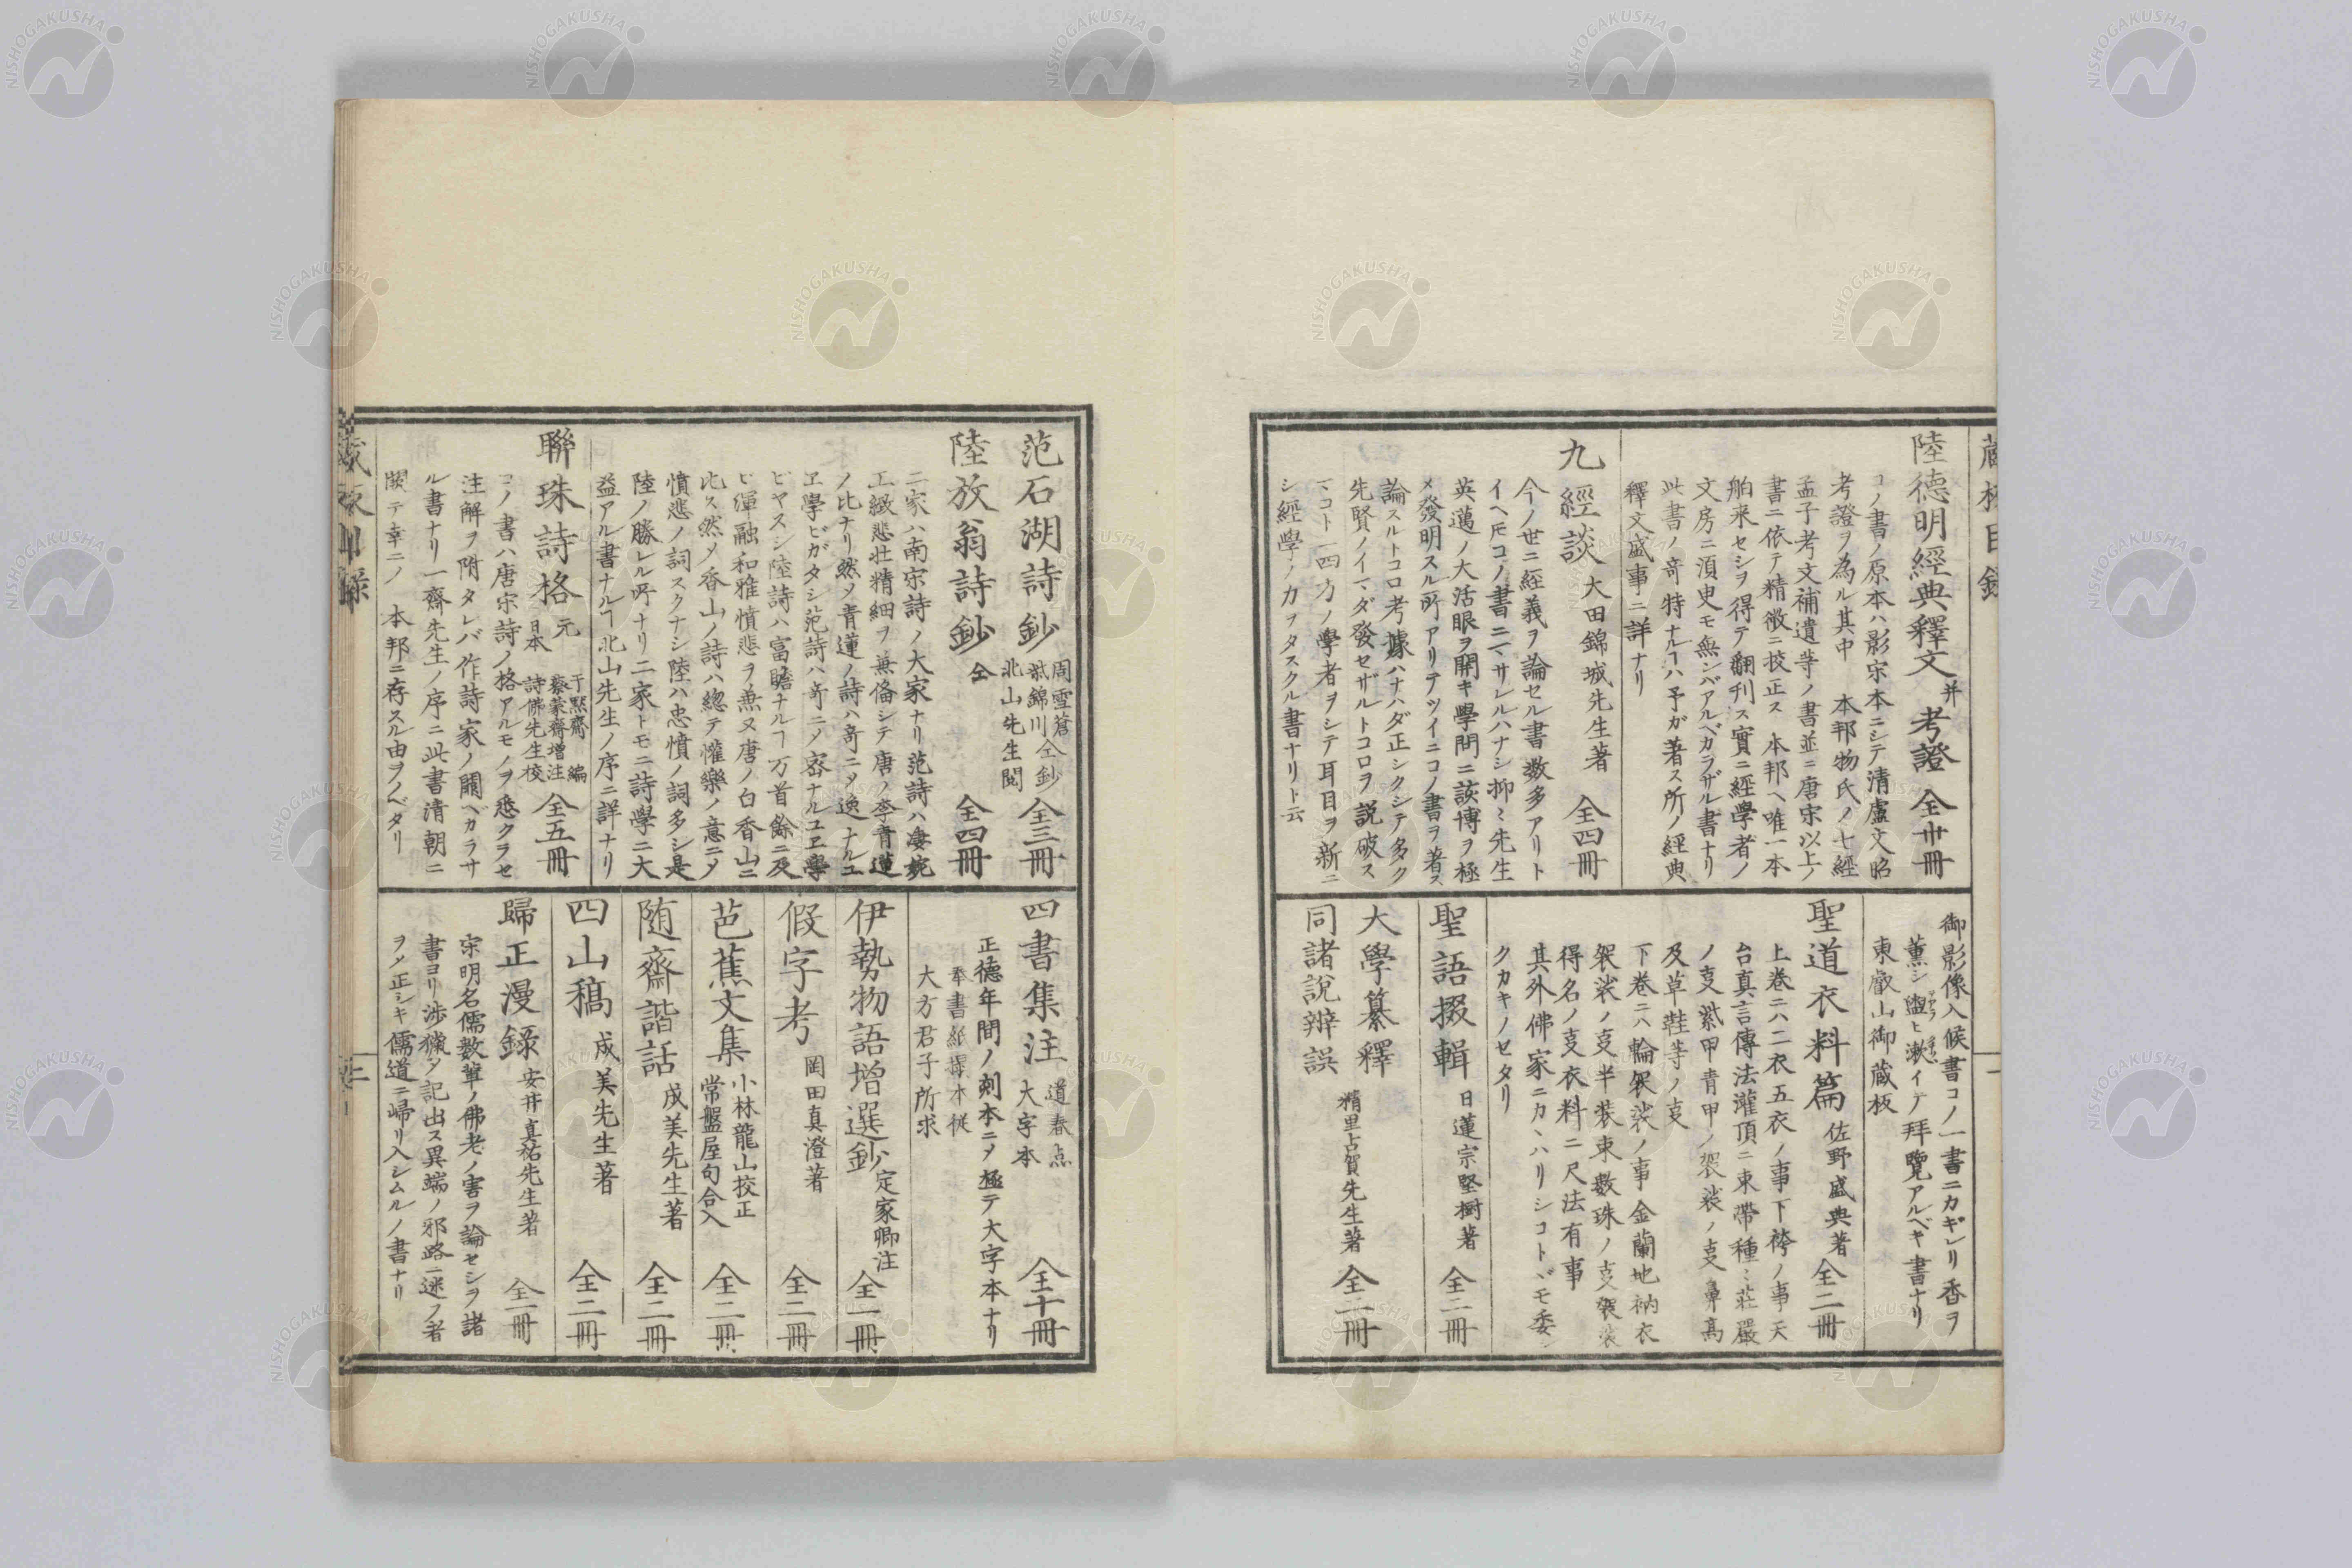 陸德明經典釋文并考證 全廿冊
コノ書ノ原本ハ影宋本ニシテ清盧文昭
考證ヲ為ル其中 本邦物氏ノ七經
孟子考文補遺等ノ書並ニ唐宋以上ノ
書ニ依テ精微ニ挍正ス 本邦ヘ唯一本
舶来セシヲ得テ翻刊ス實ニ經學者ノ
文房ニ須臾モ無ンバアルベカラザル書ナリ
此書ノ奇特ナルヿハ予ガ著ス所ノ經典
釋文盛事ニ詳ナリ
九經談 大田錦城先生著 全四冊
今ノ世ニ經義ヲ論セル書数多アリト
イヘ𪜈コノ書ニマサレルハナシ抑〻先生
英邁ノ大活眼ヲ開キ學問ニ該博ヲ極
メ發明スル所アリテツイニコノ書ヲ著ス
論スルトコロ考據ハナハダ正シクシテ多ク
先賢ノイマダ發セザルトコロヲ説破ス
マコト一四方ノ學者ヲシテ耳目ヲ新ニ
シ經學ノ力ヲタスクル書ナリト云
御影像入候書コノ一書ニカギレリ香ヲ
薫シ盥ヒ漱イテ拜覽アルベキ書ナリ
東叡山御蔵板
聖道衣料篇 佐野盛典著 全二冊
上卷ニハ二衣五衣ノ事下袴ノ事天
台真言傳法灌頂ニ束帶種〻莊嚴
ノ支紫甲青甲ノ袈裟ノ支鼻高
及草鞋等ノ支
下卷ニハ輪袈裟ノ事金蘭地衲衣
袈裟ノ支半装束數珠ノ支袈裟
得名ノ支衣料ニ尺法有事
其外佛家ニカヽハリシコトヾモ委シ
クカキノセタリ
聖語掇輯 日蓮宗堅樹著 全二冊
大學纂釋
同諸說辨誤 精里古賀先生著 全二冊
范石湖詩鈔 周雪蒼 裳錦川仝鈔 北山先生閲 全三冊
陸放翁詩鈔 仝 全四冊
二家ハ南宋詩ノ大家ナリ范詩ハ凄婉
工緻悲壮精細ヲ兼俻シテ唐ノ李青蓮
ノ比ナリ然メ青蓮ノ詩ハ奇ニメ逸ナルユ
ヱ學ビガタシ范詩ハ奇ニメ密ナルユヱ學
ビヤスシ陸詩ハ富贍ナルヿ万首餘ニ及
ビ渾融和雅憤悲ヲノ兼又唐ノ白香山ニ
比ス然メ香山ノ詩ハ總テ懽樂ノ意ニメ
憤悲ノ詞スクナシ陸ハ忠憤ノ詞多シ是
陸ノ勝レル所ナリ二家トモニ詩學ニ大
益アル書ナルヿ北山先生ノ序ニ詳ナリ
聯珠詩格 元 于黙齋 蔡蒙齋增注 編 日本 詩佛先生校 全五冊
コノ書ハ唐宋詩ノ格アルモノヲ悉クラセ
注解ヲ附タレバ作詩家ノ闕ベカラサ
ル書ナリ一齋先生ノ序ニ此書清朝ニ
闕テ幸ニノ 本邦ニ存スル由ヲノベタリ
四書集注 道春点 大字本 全十冊
正德年間ノ刻本ニメ極テ大字本ナリ
奉書紙摺本從
大方君子所求
伊勢物語增選鈔 定家卿注 全一冊
假字考 岡田真澄著 全二冊
芭蕉文集 小林龍山挍正 常盤屋句合入 全二冊
随齋諧話 成美先生著 全二冊
四山稿 成美先生著 全二冊
歸正漫録 安井真祐先生著 全一冊
宋明名儒數輩ノ佛老ノ害ヲ論セシヲ諸
書ヨリ渉獵メ記出ス異端ノ邪路ニ迷フ者
ヲメ正シキ儒道ニ歸リ入シムルノ書ナリ